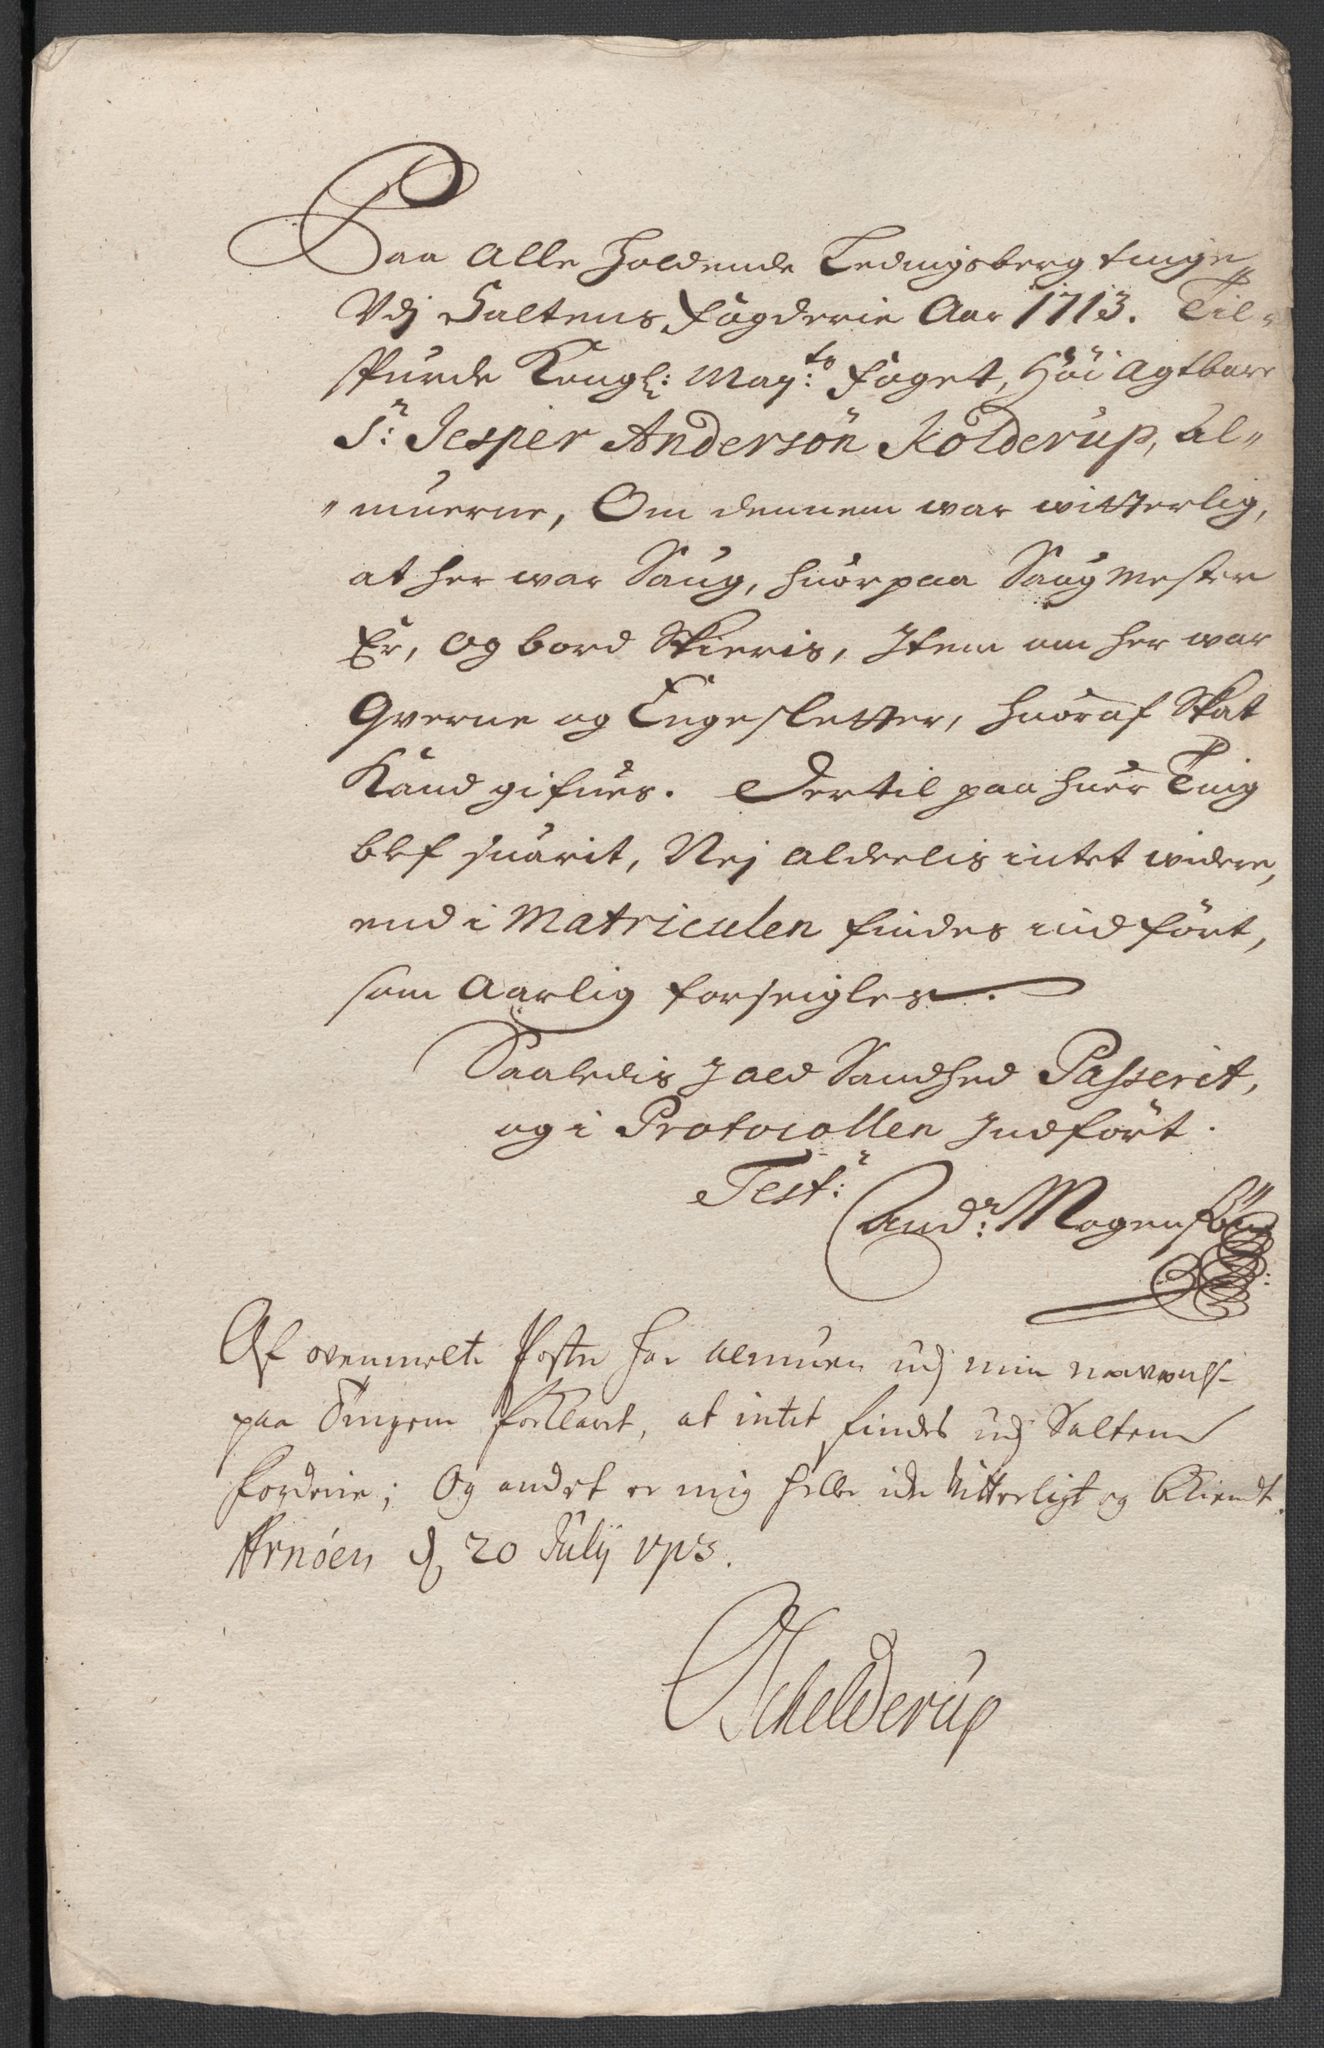 Paa Alle holdende Ledingsberg tinge
Vdj Saltens fögderie Aar 1713. Til-
spurde Kongl: May:ts foget, Höi Agtbare
Sr: Jesper Andersön Kolderup, Al-
muerne, Om dennem war witterlig,
at her war Saug, huorpaa Saugmester
Er, og bord Skieris, Item om her war
Qverne og Engesletter, huoraf Skat
Kand gifues. Dertil paa huer Ting
blef suarit, Nej aldeelis intet widere,
end i Matriculen findes indfört,
som Aarlig forseigles.
Saaledis J ald Sandhed Passerit,
og i Protocollen Indfört.
Testr:
Andr: Mogensön
Af ovenmelte Poster har Almuen udj min nærværelse
paa Tingene forklaret, at intet findes udj Saltens
fogderie; Og andet er mig heller icke Vitterligt og bekiendt.
Arnöen d 20 Julij 1713.
Schelderup